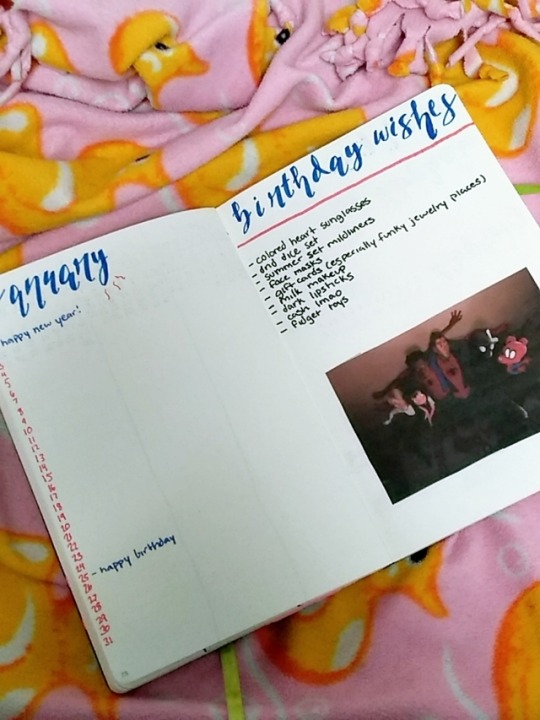 anuary
happy new year!
4
5
6
7
8
9
10
11
12
13
14
15
16
17
18
19
20
21
22
23
24
25 - happy birthday
26
27
28
29
30
31
birthday wishes
- colored heart sunglasses
- dnd dice set
- summer set mildliners
- face masks
- gift cards (especially funky jewelry places)
- milk makeup
- dark lipsticks
- cash lmao
- fidget toys